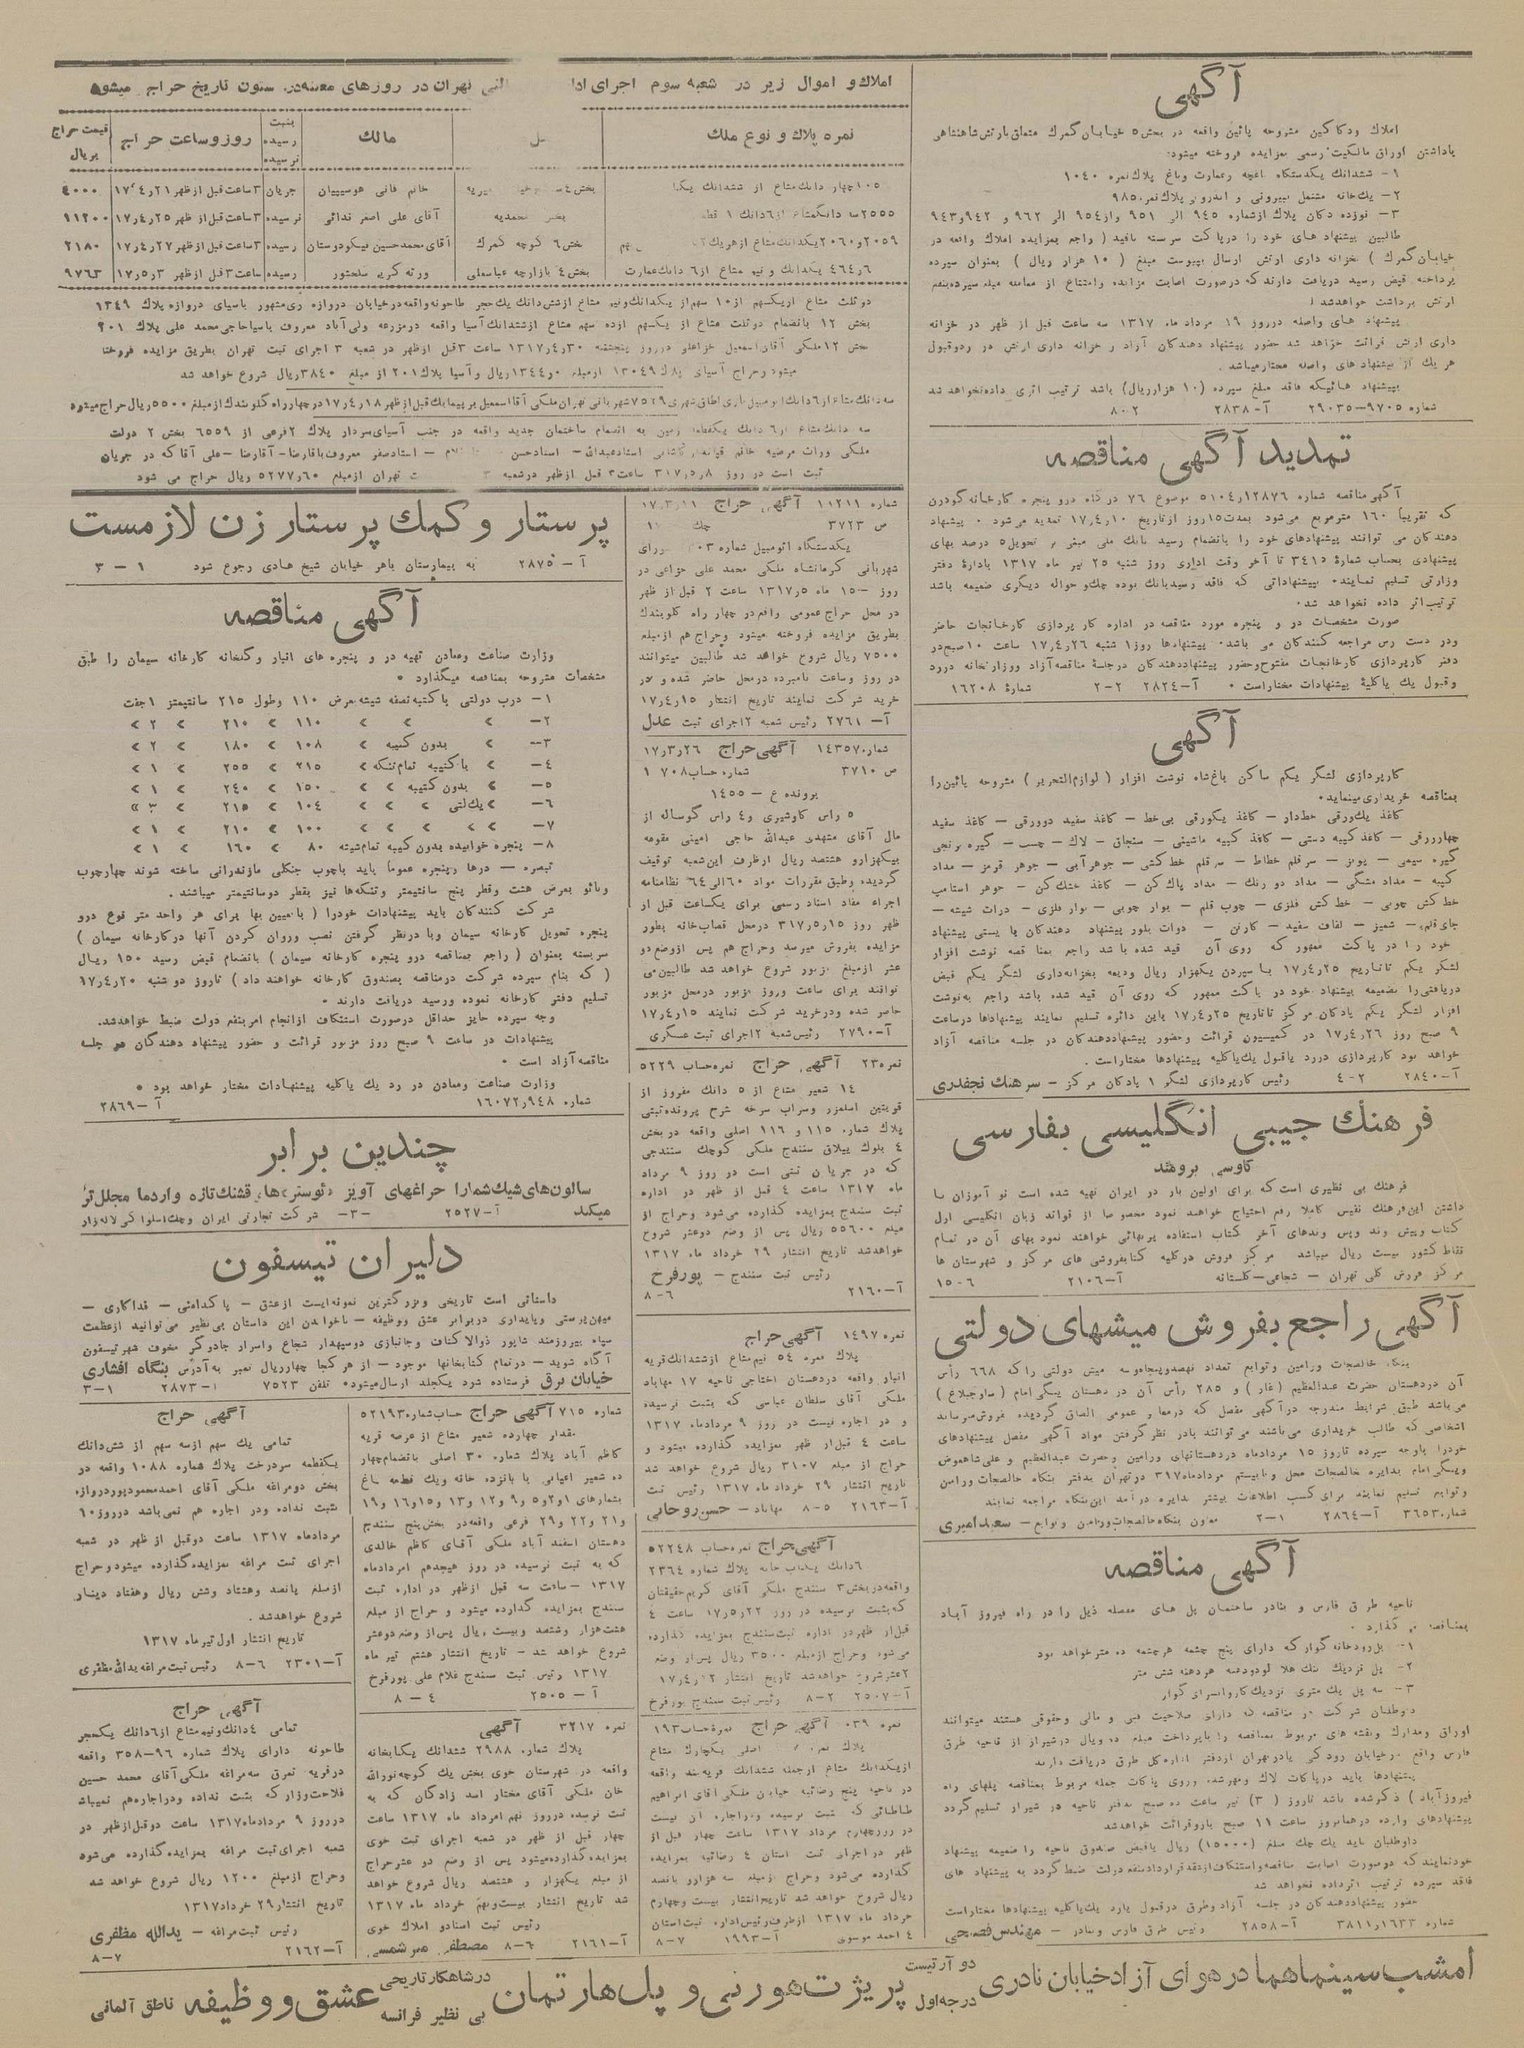 آگهی
املاک ودکاکین مشروحه پائین واقعه در بخش ۵ خیابان گمرک متعلق بارتش شاهنشاهی
باداشتن اوراق مالکیت رسمی بمزایده فروخته میشود
۱- ششدانک یکدستگاه باغچه وعمارت وباغ پلاک نمره ۱۰۴۰
۲- یک خانه مشتمل بیرونی و اندرونی پلاک نمره ۹۸۵
۳- نوزده دکان پلاک از شماره ۹۴۵ الی ۹۵۱ و از ۹۵۴ الی ۹۶۲ و ۹۴۲ و ۹۴۳
طالبین پیشنهاد های خود را درپاکت سربسته باقید ( راجع بمزایده املاک واقعه در
خیابان گمرک ) بخزانه داری ارتش ارسال بپیوست مبلغ ( ۱۰ هزار ریال ) بعنوان سپرده
پرداخته قبض رسید دریافت دارند که درصورت اصابت مزایده وامتناع از معامله مبلغ سپرده بنفع
ارتش برداشت خواهدشد
پیشنهاد های واصله درروز ۱۹ مرداد ماه ۱۳۱۷ سه ساعت قبل از ظهر در خزانه
داری ارتش قرائت خواهد شد حضور پیشنهاد دهندکان آزاد و خزانه داری ارتش در ردوقبول
هر یک از پیشنهاد های واصله مختار میباشد
بپیشنهاد هائیکه فاقد مبلغ سپرده (۱۰ هزارریال) باشد ترتیب اثری داده نخواهد شد
شماره ۹۷۰۵-۲۹۰۳۵ آ-۲۸۳۸ ۲-۸
تمدید آگهی مناقصه
آگهی مناقصه شماره ۵۱۰۴ر۱۲۸۷۶ موضوع ۷۶ درگاه درو پنجره کارخانه گودرن
که تقریباً ۱۶۰ مترمربع می شود بمدت ۱۵ روز ازتاریخ ۱۷ر۴ر۱۰ تمدید می شود
دهندکان می توانند پیشنهادهای خود را بانضمام رسید بانک ملی مبنی بر تحویل ۵ درصد بهای
پیشنهادی بحساب شمارهٔ ۳۴۱۵ تا آخر وقت اداری روز شنبه ۲۵ تیر ماه ۱۳۱۷ بادارهٔ دفتر
وزارتی تسلیم نمایند بپیشنهاداتی که فاقد رسیدبانک بوده چک و حواله دیگری ضمیمه باشد
ترتیب اثر داده نخواهد شد
صورت مشخصات در و پنجره مورد مناقصه در اداره کار پردازی کارخانجات حاضر
ودر دست رس مراجعه کنندکان می باشد پیشنهادها روز ۱ شنبه ۱۷ر۴ر۲۶ ساعت ۱۰ صبح در
دفتر کارپردازی کارخانجات مفتوح وحضور پیشنهاددهندکان درجلسهٔ مناقصه آزاد ووزارتخانه دررد
وقبول یک یاکلیهٔ پیشنهادات مختار است آ-۲۸۲۴ ۲-۲ شمارهٔ ۱۶۲۰۸
آگهی
کارپردازی لشگر یکم ساکن باغ شاه نوشت افزار ( لوازم التحریر ) مشروحه پائین را
بمناقصه خریداری مینماید
کاغذ یک ورقی خط دار - کاغذ یکورقی بی خط - کاغذ سفید دوورقی - کاغذ سفید
چهارورقی - کاغذ کپیه دستی - کاغذ کپیه ماشینی - سنجاق - لاک - چسب - گیره برنجی
گیره سیمی - پونز - سرقلم خطاط - سرقلم خط کشی - جوهر آبی - جوهر قرمز - مداد
کپیه - مداد مشگی - مداد دو رنگ - مداد پاک کن - کاغذ خشک کن - جوهر استامپ
خط کش چوبی - خط کش فلزی - چوب قلم - نوار چوبی - نوار فلزی - دوات شیشه -
لشگر یکم تاتاریخ ۱۷ر۴ر۲۵ با سپردن یکهزار ریال ودیعه بخزانه داری لشگر یکم قبض
دریافتی را بضمیمه پیشنهاد خود در پاکت ممهور که روی آن قید شده باشد راجع به نوشت
افزار لشگر یکم پادکان مرکز تاتاریخ ۱۷ر۴ر۲۵ باین دائره تسلیم نمایند پیشنهادها درساعت
۹ صبح روز ۱۷ر۴ر۲۶ در کمیسیون قرائت وحضور پیشنهاددهندکان در جلسه مناقصه آزاد
خواهد بود کارپردازی دررد یاقبول یک یاکلیه پیشنهادها مختار است
آ-۲۸۴۰ ۲-۴ رئیس کارپردازی لشگر ۱ پادکان مرکز - سرهنک نجفدری
فرهنك جیبی انگلیسی بفارسی
کاوسی برومند
فرهنک بی نظیری است که برای اولین بار در ایران تهیه شده است نو آموزان با
داشتن این فرهنک نفیس کاملا رفع احتیاج خواهند نمود مخصوصا از قواعد زبان انگلیسی اول
کتاب وپیش وند وپس وندهای آخر کتاب استفاده بی نهائی خواهند نمود بهای آن در تمام
نقاط کشور بیست ریال میباشد مرکز فروش درکلیه کتابفروشی های مرکز و شهرستان ها
مرکز فروش کلی تهران - شجاعی - گلستانه آ-۲۱۰۶ ۶-۱۵
آگهی راجع بفروش میشهای دولتی
بنگاه خالصجات ورامین وتوابع تعداد نهصدوپنجاه وسه میش دولتی را که ۶۶۸ رأس
آن دردهستان حضرت عبدالعظیم (غار) و ۲۸۵ رأس آن در دهستان پیگی امام (ساوجبلاغ)
می باشد طبق شرایط مندرجه در آگهی مفصل که درمعابر عمومی الصاق گردیده بفروش میرساند
اشخاصی که طالب خریداری می باشند می توانند بادر نظر گرفتن مواد آگهی مفصل پیشنهادهای
خودرا بوجه سپرده تاروز ۱۵ مردادماه دردهستانهای ورامین وحضرت عبدالعظیم و علی شاهعوض
وتوابع تسلیم نمایند برای کسب اطلاعات بیشتر بدایره درآمد این بنگاه مراجعه نمایند
شماره ۳۶۵۳ آ-۲۸۶۴ ۱-۲ معاون بنگاه خالصجات ورامین وتوابع - سعید امیری
آگهی مناقصه
ناحیه طرق فارس و بنادر ساختمان پل های مفصله ذیل را در راه فیروز آباد
بمناقصه می گذارد
۱- پل رودخانه گوار که دارای پنج چشمه هرچشمه ده متر خواهد بود
۲- پل نزدیک تنک هلا لودودهنه هردهنه شش متر
۳- سه پل یک متری نزدیک کاروانسرای گوار
داوطلبان شرکت در مناقصه که دارای صلاحیت فنی و مالی وحقوقی هستند میتوانند
اوراق ومدارک ونقشه های مربوط بمناقصه را باپرداخت مبلغ ده ریال درشیراز از ناحیه طرق
فارس واقع درخیابان رودکی یادرتهران ازدفتر اداره کل طرق دریافت دارند
پیشنهادها باید درپاکات لاک ومهرشده وروی پاکات جمله مربوط بمناقصه پلهای راه
فیروز آباد) ذکرشده باشد تاروز (۳) تیر ساعت ده صبح بدفتر ناحیه در شیراز تسلیم گردد
پیشنهادهای وارده درهمانروز ساعت ۱۱ صبح باز و قرائت خواهدشد
داوطلبان باید یک چک مبلغ (۱۵۰۰۰) ریال یاقبض صندوق ناحیه را ضمیمه پیشنهاد
خودنمایند که درصورت اصابت مناقصه واستنکاف ازعقد قرارداد بنفع دولت ضبط گردد به پیشنهاد های
فاقد سپرده ترتیب اثرداده نخواهد شد
حضور پیشنهاددهندکان در جلسه آزاد وطرق درقبول یارد یک یاکلیه پیشنهادها مختاراست
شماره ۱۶۳۳ر۳۸۱۱ آ-۲۸۵۸ رئیس طرق فارس وبنادر - مهندس فصیحی
املاک و اموال زیر در شعبه سوم اجرای تهران در روزهای معینه در ستون تاریخ حراج میشود
نمره پلاک و نوع ملک | مالک | بثبت رسیده نرسیده | روز و ساعت حراج | قیمت حراج بریال
۱۰۵ چهار دانک مشاع از ششدانک | خانم فانی هوسپیان | جریان | ۳ ساعت قبل از ظهر ۲۱ر۴ر۱۷ | ۴۰۰۰
۲۵۵۵ | آقای علی اصغر فدائی | نرسیده | ۳ ساعت قبل از ظهر ۲۵ر۴ر۱۷ | ۱۱۲۰۰
۲۰۵۹ و ۲۰۶۰ یکدانک مشاع از هریک | بخش ۶ کوچه گمرک | آقای محمدحسین نیکودوستان | رسیده | ۳ ساعت قبل از ظهر ۲۷ر۴ر۱۷ | ۲۱۸۰
۴۶۴ر۶ یکدانک و نیم مشاع از ۶ دانک عمارت | بخش ۴ بازارچه عباسعلی | ورثه کریم سلحشور | رسیده | ساعت ۳ قبل از ظهر ۳ر۵ر۱۷ | ۹۷۶۳
دوثلث مشاع ازیکسهم از ۱۰ سهم از یکدانک ونیم مشاع ازشش دانک یک حجر طاحونه واقعه درخیابان دروازه ری مشهور باسیای دروازه پلاک ۱۳۴۹
بخش ۱۲ بانضمام دوثلث مشاع از یکسهم ازده سهم مشاع ازششدانک آسیا واقعه درمزرعه ولی آباد معروف باسیا حاجی محمد علی پلاک ۲۰۱
بخش ۱۲ ملکی آقای اسمعیل خزاعلی درروز پنجشنبه ۱۳۱۷ر۴ر۳۰ ساعت ۳ قبل ازظهر در شعبه ۳ اجرای ثبت تهران بطریق مزایده فروخته
میشود وحراج آسیای پلاک ۱۳۰۴۹ ازمبلغ ۱۳۴۴۰ ریال وآسیا پلاک ۲۰۱ از مبلغ ۳۸۴۰ ریال شروع خواهد شد
سه دانک مشاع از ۶ دانک اتومبیل باری اطاق شهری ۷۵۲۹ شهربانی تهران ملکی آقا اسمعیل قبل از ظهر ۱۸ر۴ر۱۷ در چهارراه گلوبندک ازمبلغ ۵۵۰۰ ریال حراج میشود
سه دانک مشاع از ۶ دانک یکقطعه زمین به انضمام ساختمان جدید واقعه در جنب آسیای سردار پلاک ۲ فرعی از ۶۵۵۹ بخش ۲ دولت
ملکی وراث مرضیه خانم استادعبدالله - استادحسن - استادصفر معروف باقارضا - آقارضا - علی آقا که در جریان
ثبت است در روز ۳۱۷ر۵ر۸ ساعت ۳ قبل ازظهر درشعبه ۳ تهران ازمبلغ ۵۲۷۷ر۶۰ ریال حراج می شود
شماره ۱۱۲۱۱ آگهی حراج ۱۷ر۳ر۱۱
ص ۳۷۲۳
یکدستگاه اتومبیل شماره
شهربانی کرمانشاه ملکی محمد علی خزاعی در
روز ۱۵ ماه ۵ر۱۳۱۷ ساعت ۲ قبل از ظهر
در محل حراج عمومی واقع در چهار راه گلوبندک
بطریق مزایده فروخته میشود وحراج هم ازمبلغ
۷۵۰۰ ریال شروع خواهد شد طالبین میتوانند
در روز وساعت نامبرده درمحل حاضر شده و در
خرید شرکت نمایند تاریخ انتشار ۱۷ر۴ر۱۵
آ-۲۷۶۱ رئیس شعبه ۲ اجرای ثبت عدل
شماره ۱۴۳۵۷ آگهی حراج ۱۷ر۳ر۲۶
ص ۳۷۱۰ شماره حساب ۷۰۸ ۱
پرونده ع - ۱۴۵۵
۵ راس کاوشیری و ۴ راس گوساله از
مال آقای مشهدی عبدالله حاجی امینی مقومه
بیکهزارو هشتصد ریال ازطرف این شعبه توقیف
گردیده وطبق مقررات مواد ۶۰ الی ۶۴ نظامنامه
اجراء مفاد اسناد رسمی برای یکساعت قبل از
ظهر روز ۳۱۷ر۵ر۱۵ درمحل قصاب خانه بطور
مزایده بفروش میرسد وحراج هم پس ازوضع دو
عشر ازمبلغ مزبور شروع خواهد شد طالبین می
توانند برای ساعت وروز مزبور درمحل مزبور
حاضر شده ودرخرید شرکت نمایند ۱۷ر۴ر۱۵
آ-۲۷۹۰ رئیس شعبه ۲ اجرای ثبت عسگری
نمره ۲۳ آگهی حراج نمره حساب ۵۲۲۹
۱۴ شعیر مشاع از ۵ دانک مفروز از
قویتین اسلمرز وسراب سرخه شرح پرونده ثبتی
پلاک شماره ۱۱۵ و ۱۱۶ اصلی واقعه دربخش
۴ بلوک ییلاق سنندج ملکی کوچک سنندجی
که در جریان ثبتی است در روز ۹ مرداد
ماه ۱۳۱۷ ساعت ۴ قبل از ظهر در اداره
ثبت سنندج بمزایده گذارده می شود وحراج از
مبلغ ۵۵۶۰۰ ریال پس از وضع دوعشر شروع
خواهدشد تاریخ انتشار ۲۹ خرداد ماه ۱۳۱۷
رئیس ثبت سنندج - پورفرخ
آ-۲۱۶۰ ۶-۸
نمره ۱۴۹۷ آگهی حراج
پلاک نمره ۵۴ نیم مشاع ازششدانک قریه
انبار واقعه دردهستان اختاجی ناحیه ۱۷ مهاباد
ملکی آقای سلطان عباسی که بثبت نرسیده
و در اجاره نیست در روز ۹ مردادماه ۱۳۱۷
ساعت ۴ قبل از ظهر بمزایده گذارده میشود و
حراج از مبلغ ۳۱۰۷ ریال شروع خواهد شد
تاریخ انتشار ۲۹ خرداد ماه ۱۳۱۷ رئیس ثبت
آ-۲۱۶۳ ۵-۸ مهاباد - حسن روحانی
آگهی حراج نمره حساب ۵۲۲۴۸
۶ دانک یکباب خانه پلاک شماره ۲۳۶۴
واقعه دربخش ۳ سنندج ملکی آقای کریم حقیقتان
که بثبت نرسیده در روز ۱۷ر۵ر۲۲ ساعت ۴
قبل از ظهر در اداره ثبت سنندج بمزایده گذارده
می شود وحراج ازمبلغ ۳۵۰۰ ریال پس از وضع
۲ عشر شروع خواهدشد تاریخ انتشار ۱۷ر۴ر۲
آ-۲۵۰۷ ۲-۸ رئیس ثبت سنندج پورفرخ
نمره ۰۳۹ آگهی حراج نمره حساب ۱۹۳
ازیکدانک مشاع ازجمله ششدانک قریه واقعه
در ناحیه پنج رضائیه ملکی آقای ابراهیم
طباطبائی که بثبت نرسیده ودراجاره آن نیست
در روزچهارم مرداد ۱۳۱۷ ساعت چهار قبل از
ظهر در اجرای ثبت استان ۴ رضائیه بمزایده
گذارده می شود وحراج ازمبلغ سه هزارو پانصد
ریال شروع خواهد شد تاریخ انتشار بیست وچهارم
خرداد ماه ۱۳۱۷ ازطرف رئیس اداره ثبت استان
۴ احمد موسوی آ-۱۹۹۳ ۷-۸
پرستار و کمك پرستار زن لازمست
آ-۲۸۷۵ به بیمارستان باهر خیابان شیخ هادی رجوع شود ۱-۳
آگهی مناقصه
وزارت صناعت ومعادن تهیه در و پنجره های انبار وگلخانه کارخانه سیمان را طبق
مشخصات مشروحه بمناقصه میگذارد
۱- درب دولتی باکتیبه نصفه شیشه بعرض ۱۱۰ وطول ۲۱۵ سانتیمتر ۱ جفت
۲- » » » ۱۱۰ » ۲۱۰ » ۲ »
۳- » بدون کتیبه » ۱۰۸ » ۱۸۰ » ۲ »
۴- » باکتیبه تمام تنکه » ۲۱۵ » ۲۵۵ » ۱ »
۵- » بدون کتیبه » » ۱۵۰ » ۲۴۰ » ۱ »
۶- » یک لتی » » ۱۰۴ » ۲۱۵ » ۳ »
۷- » » » » ۱۰۰ » ۲۱۰ » ۱ »
۸- پنجره خوابیده بدون کتیبه تمام شیشه ۸۰ » ۱۶۰ » ۱ »
تبصره - درها وپنجره عموماً باید باچوب جنگلی مازندرانی ساخته شوند چهارچوب
وبائو بعرض هشت وقطر پنج سانتیمتر وتنکه ها نیز بقطر دوسانتیمتر میباشند
شرکت کنندکان باید پیشنهادات خودرا ( باتعیین بها برای هر واحد متر فوع درو
پنجره تحویل کارخانه سیمان وبا درنظر گرفتن نصب وروان کردن آنها درکارخانه سیمان )
سربسته بعنوان ( راجع بمناقصه درو پنجره کارخانه سیمان ) بانضمام قبض رسید ۱۵۰ ریال
( که بنام سپرده شرکت درمناقصه بصندوق کارخانه خواهند داد ) تاروز دو شنبه ۱۷ر۴ر۲۰
تسلیم دفتر کارخانه نموده ورسید دریافت دارند
وجه سپرده حایز حداقل درصورت استنکاف ازانجام امر بنفع دولت ضبط خواهدشد
پیشنهادات در ساعت ۹ صبح روز مزبور قرائت و حضور پیشنهاد دهندکان در جلسه
مناقصه آزاد است
وزارت صناعت ومعادن در رد یک یاکلیه پیشنهادات مختار خواهد بود
شماره ۱۶۰۷۲ر۹۴۸ آ-۲۸۶۹
چندین برابر
سالون های شیک شمارا چراغهای آویز «لوستر» های قشنک تازه واردما مجلل تر
میکند آ-۲۵۲۷ ۳- شرکت تجارتی ایران وچک اسلواکی لاله زار
دلیران تیسفون
داستانی است تاریخی وبزرگترین نمونه ایست ازعشق - پاکدامنی - فداکاری -
میهن پرستی وپایداری دربرابر عشق ووظیفه - باخواندن این داستان بی نظیر می توانید ازعظمت
سپاه پیروزمند شاپور ذوالاکتاف وجانبازی دوسپهدار شجاع واسرار جادوگر مخوف شهر تیسفون
آگاه شوید - درتمام کتابخانها موجود - از هر کجا چهارریال تمبر به آدرس بنگاه افشاری
خیابان برق فرستاده شود یکجلد ارسال میشود تلفن ۷۵۲۳ آ-۲۸۷۳ ۱-۳
شماره ۷۱۵ آگهی حراج حساب شماره ۵۲۱۹۳
مقدار چهارده شعیر مشاع از عرصه قریه
کاظم آباد پلاک شماره ۳۰ اصلی بانضمام چهار
ده شعیر اعیانی با پانزده خانه ویک قطعه باغ
بشمارهای ۱ و ۲ و ۵ و ۹ و ۱۲ و ۱۳ و ۱۵ و ۱۶ و ۱۹
و ۲۱ و ۲۲ و ۲۹ فرعی واقعه در بخش پنج سنندج
دهستان اسفند آباد ملکی آقای کاظم خالدی
که به ثبت نرسیده در روز هیجدهم امردادماه
۱۳۱۷ - ساعت سه قبل ازظهر در اداره ثبت
سنندج بمزایده گذارده میشود و حراج از مبلغ
هشت هزار وششصد وبیست ریال پس از وضع دوعشر
شروع خواهد شد - تاریخ انتشار هشتم تیر ماه
۱۳۱۷ رئیس ثبت سنندج غلام علی پورفرخ
آ-۲۵۰۵ ۴-۸
نمره ۳۲۱۷ آگهی
پلاک شماره ۲۹۸۸ ششدانک یکبابخانه
واقعه در شهرستان خوی بخش یک کوچه نورالله
خان ملکی آقای مختار اسد زادگان که به
ثبت نرسیده درروز نهم امرداد ماه ۱۳۱۷ ساعت
چهار قبل از ظهر در شعبه اجرای ثبت خوی
بمزایده گذارده میشود پس از وضع دو عشر حراج
از مبلغ یکهزار و هشتصد ریال شروع خواهد
شد تاریخ انتشار بیست ونهم خرداد ماه ۱۳۱۷
رئیس ثبت اسنادو املاک خوی
آ-۲۱۶۱ ۶-۸ مصطفی میر شمسی
آگهی حراج
تمامی یک سهم ازسه سهم از شش دانک
یکقطعه سردرخت پلاک شماره ۱۰۸۸ واقعه در
بخش دومراغه ملکی آقای احمد محمودپوردروازه
بثبت نداده ودر اجاره هم نمی باشد درروز ۱۰
مردادماه ۱۳۱۷ ساعت دوقبل از ظهر در شعبه
اجرای ثبت مراغه بمزایده گذارده میشود وحراج
ازمبلغ پانصد وهشتاد وشش ریال وهفتاد دینار
شروع خواهدشد
تاریخ انتشار اول تیر ماه ۱۳۱۷
آ-۲۳۰۱ ۶-۸ رئیس ثبت مراغه یدالله مظفری
آگهی حراج
تمامی ۴ دانک ونیم مشاع از ۶ دانک یکحجر
طاحونه دارای پلاک شماره ۹۶-۳۵۸ واقعه
درقریه تمرق سه مراغه ملکی آقای محمد حسین
فلاحت وزار که بثبت نداده ودراجاره هم نمیباشد
درروز ۹ مردادماه ۱۳۱۷ ساعت دوقبل ازظهر در
شعبه اجرای ثبت مراغه بمزایده گذارده می شود
وحراج ازمبلغ ۱۲۰۰ ریال شروع خواهد شد
تاریخ انتشار ۲۹ خرداد ۱۳۱۷
رئیس ثبت مراغه - یدالله مظفری
آ-۲۱۶۲ ۷-۸
امشب سینما هما در هوای آزاد خیابان نادری دو آرتیست درجه اول پریژت هورنی و پل هارتمان در شاهکار تاریخی بی نظیر فرانسه عشق و وظیفه ناطق آلمانی